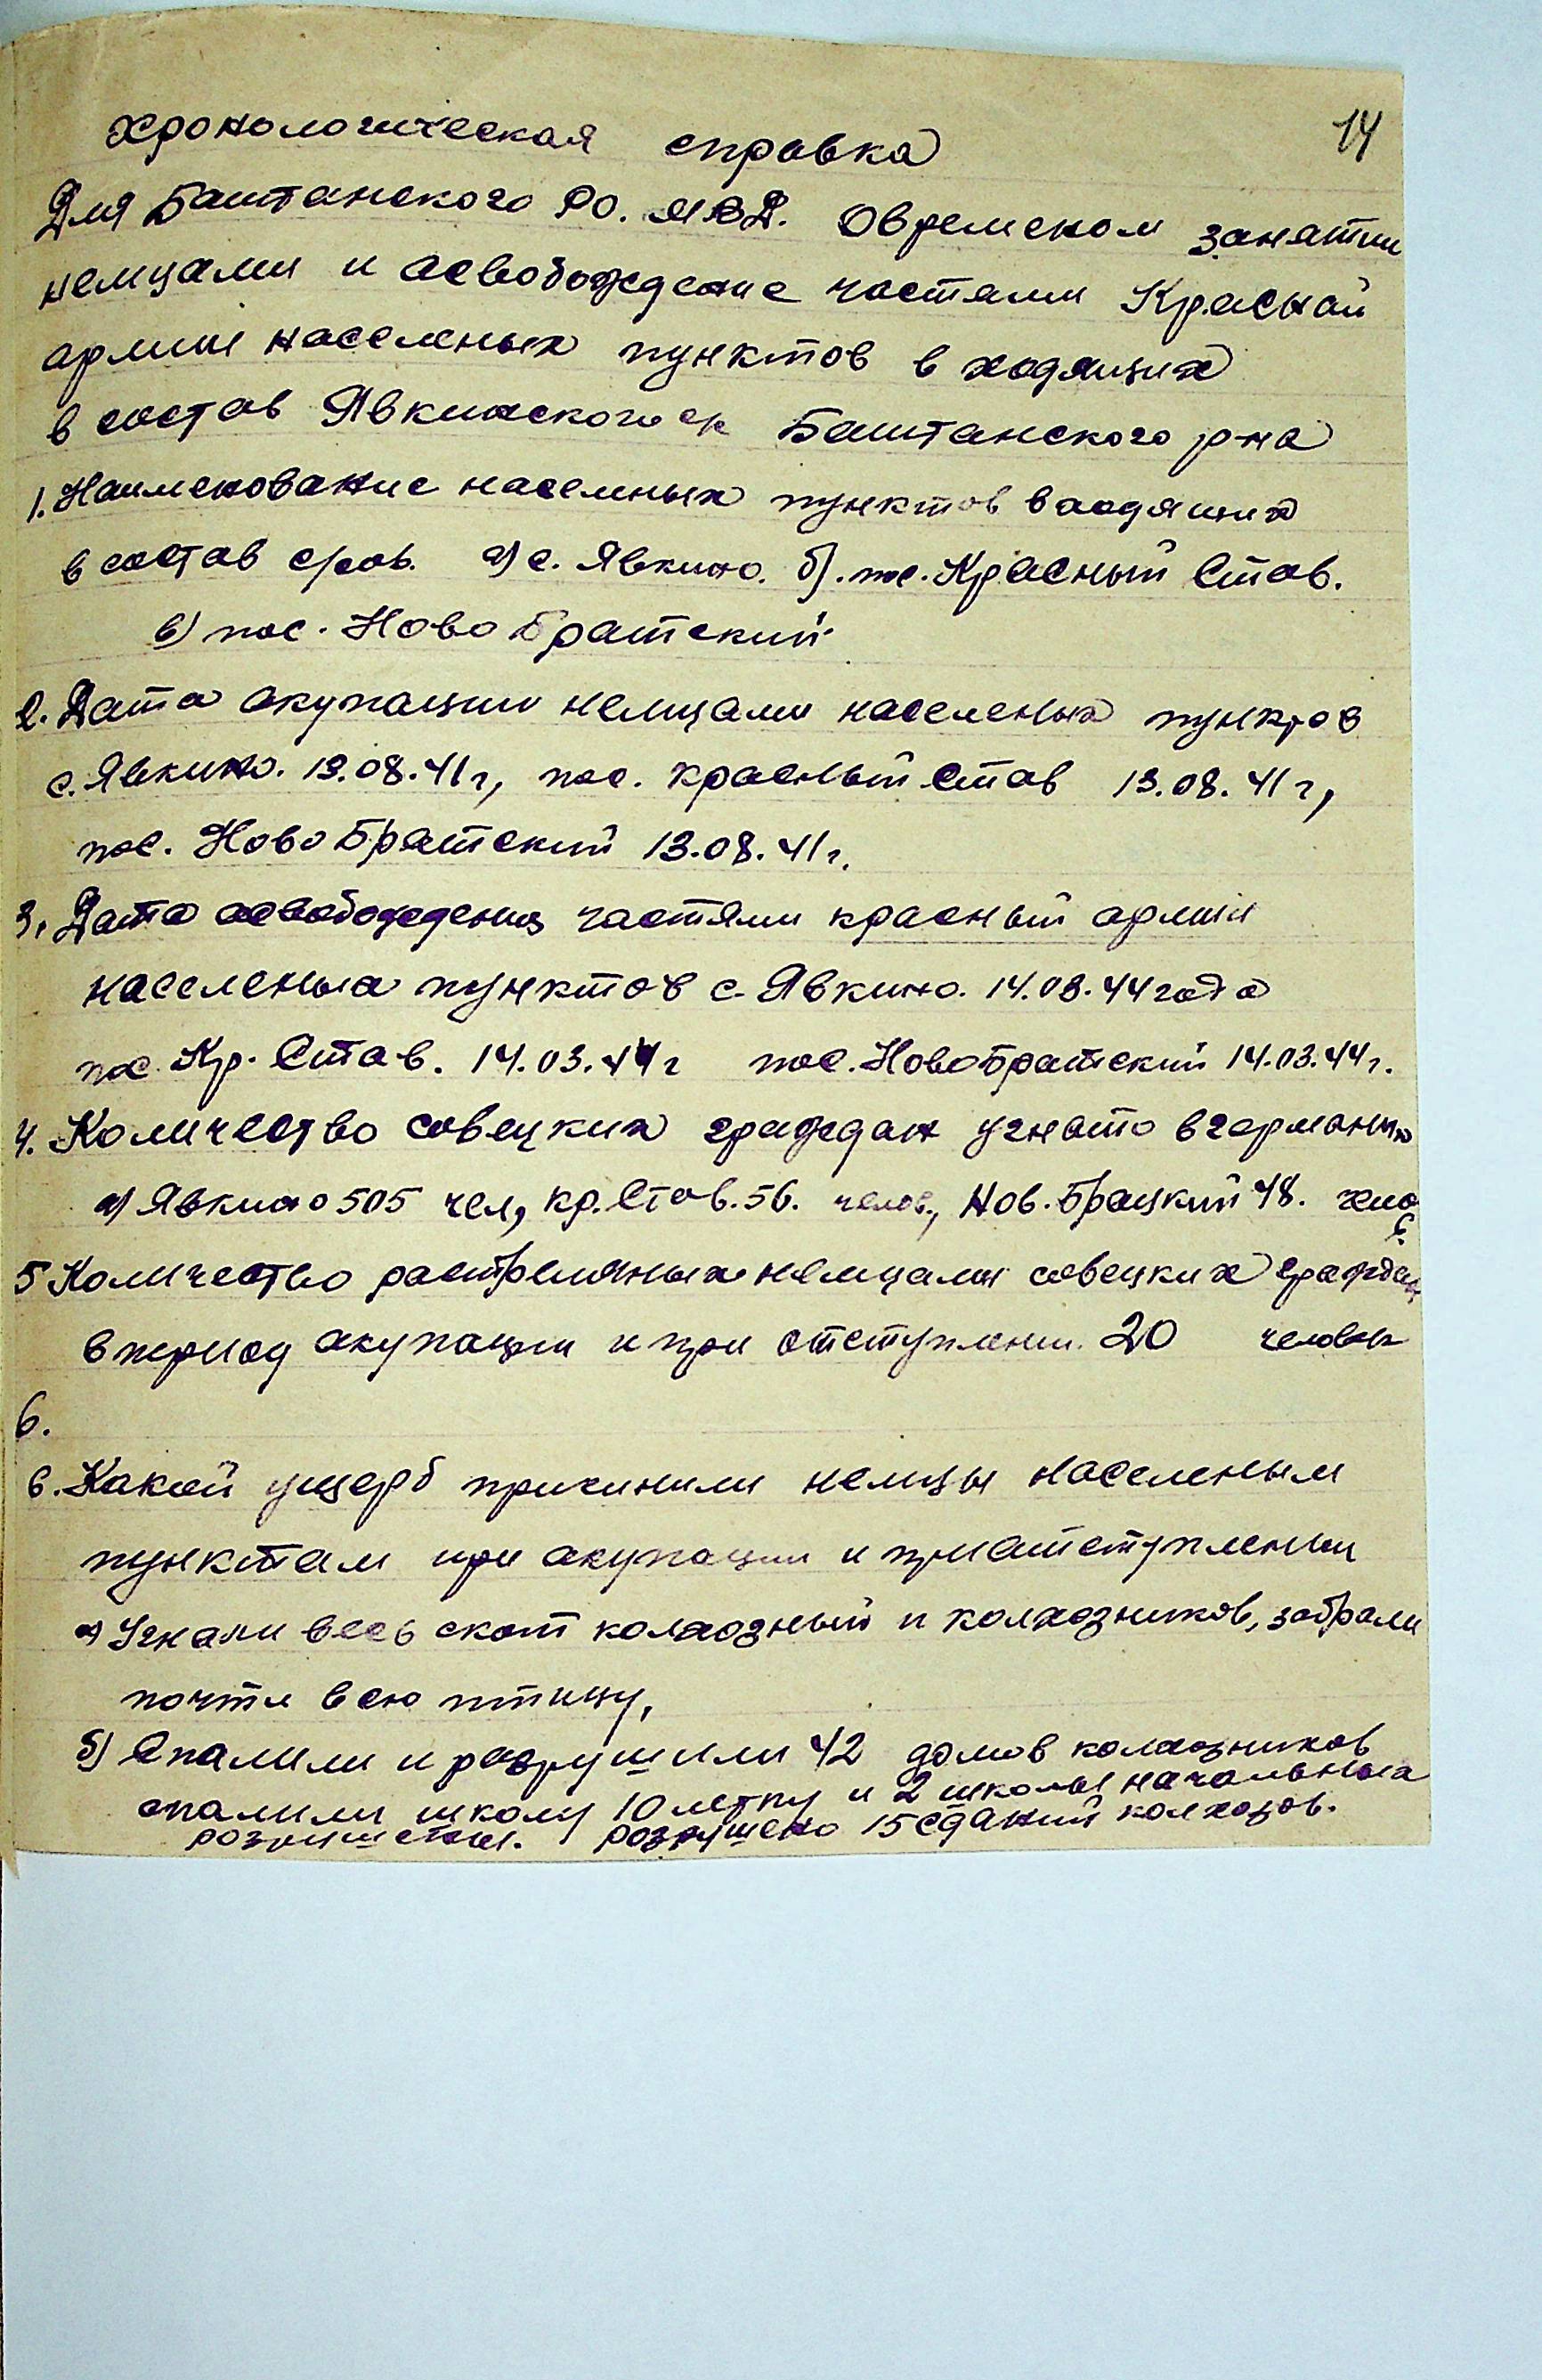 14
хронологическая справка
Для Баштанского РО. МВД. Овременом занятии
немцами и асвобождение частями Красной
армии населеных пунктов в ходящих
в состав Явкинского ск Баштанского р-на
1. Наименование населеных пунктов в ходящих
в состав с/сов. а) с. Явкино. б). пос. Красный Став.
в) пос. Ново Братский
2. Дата акупации немцами населеных пунктов
с. Явкино. 13.08.41 г, пос. красный Став 13.08.41 г,
пос. Ново Братский 13.08.41 г.
3. Дата асвобождения частями красный армии
населеных пунктов с. Явкино. 14.03.44 года
пос. Кр. Став. 14.03.44 г пос. Ново Братский 14.03.44 г.
4. Количество совецких граждан угнато в германию
а) Явкино 505 чел, кр. Став. 56. челов., Нов. Брацкий 48. чело
в.
5 Количество растреляных немцами совецких граждан
в период акупации и при отступлении. 20 человек
6.
6. Какой ущерб причинили немцы населеным
пунктам при акупации и при атступлении
а) Угнали весь скот колхозный и колхозников, забрали
почти всю птицу,
б) Спалили и разрушили 42 домов колхозников
спалили школу 10 летку и 2 школы начальных
розрушены. розрушено 15 сданий колхозов.